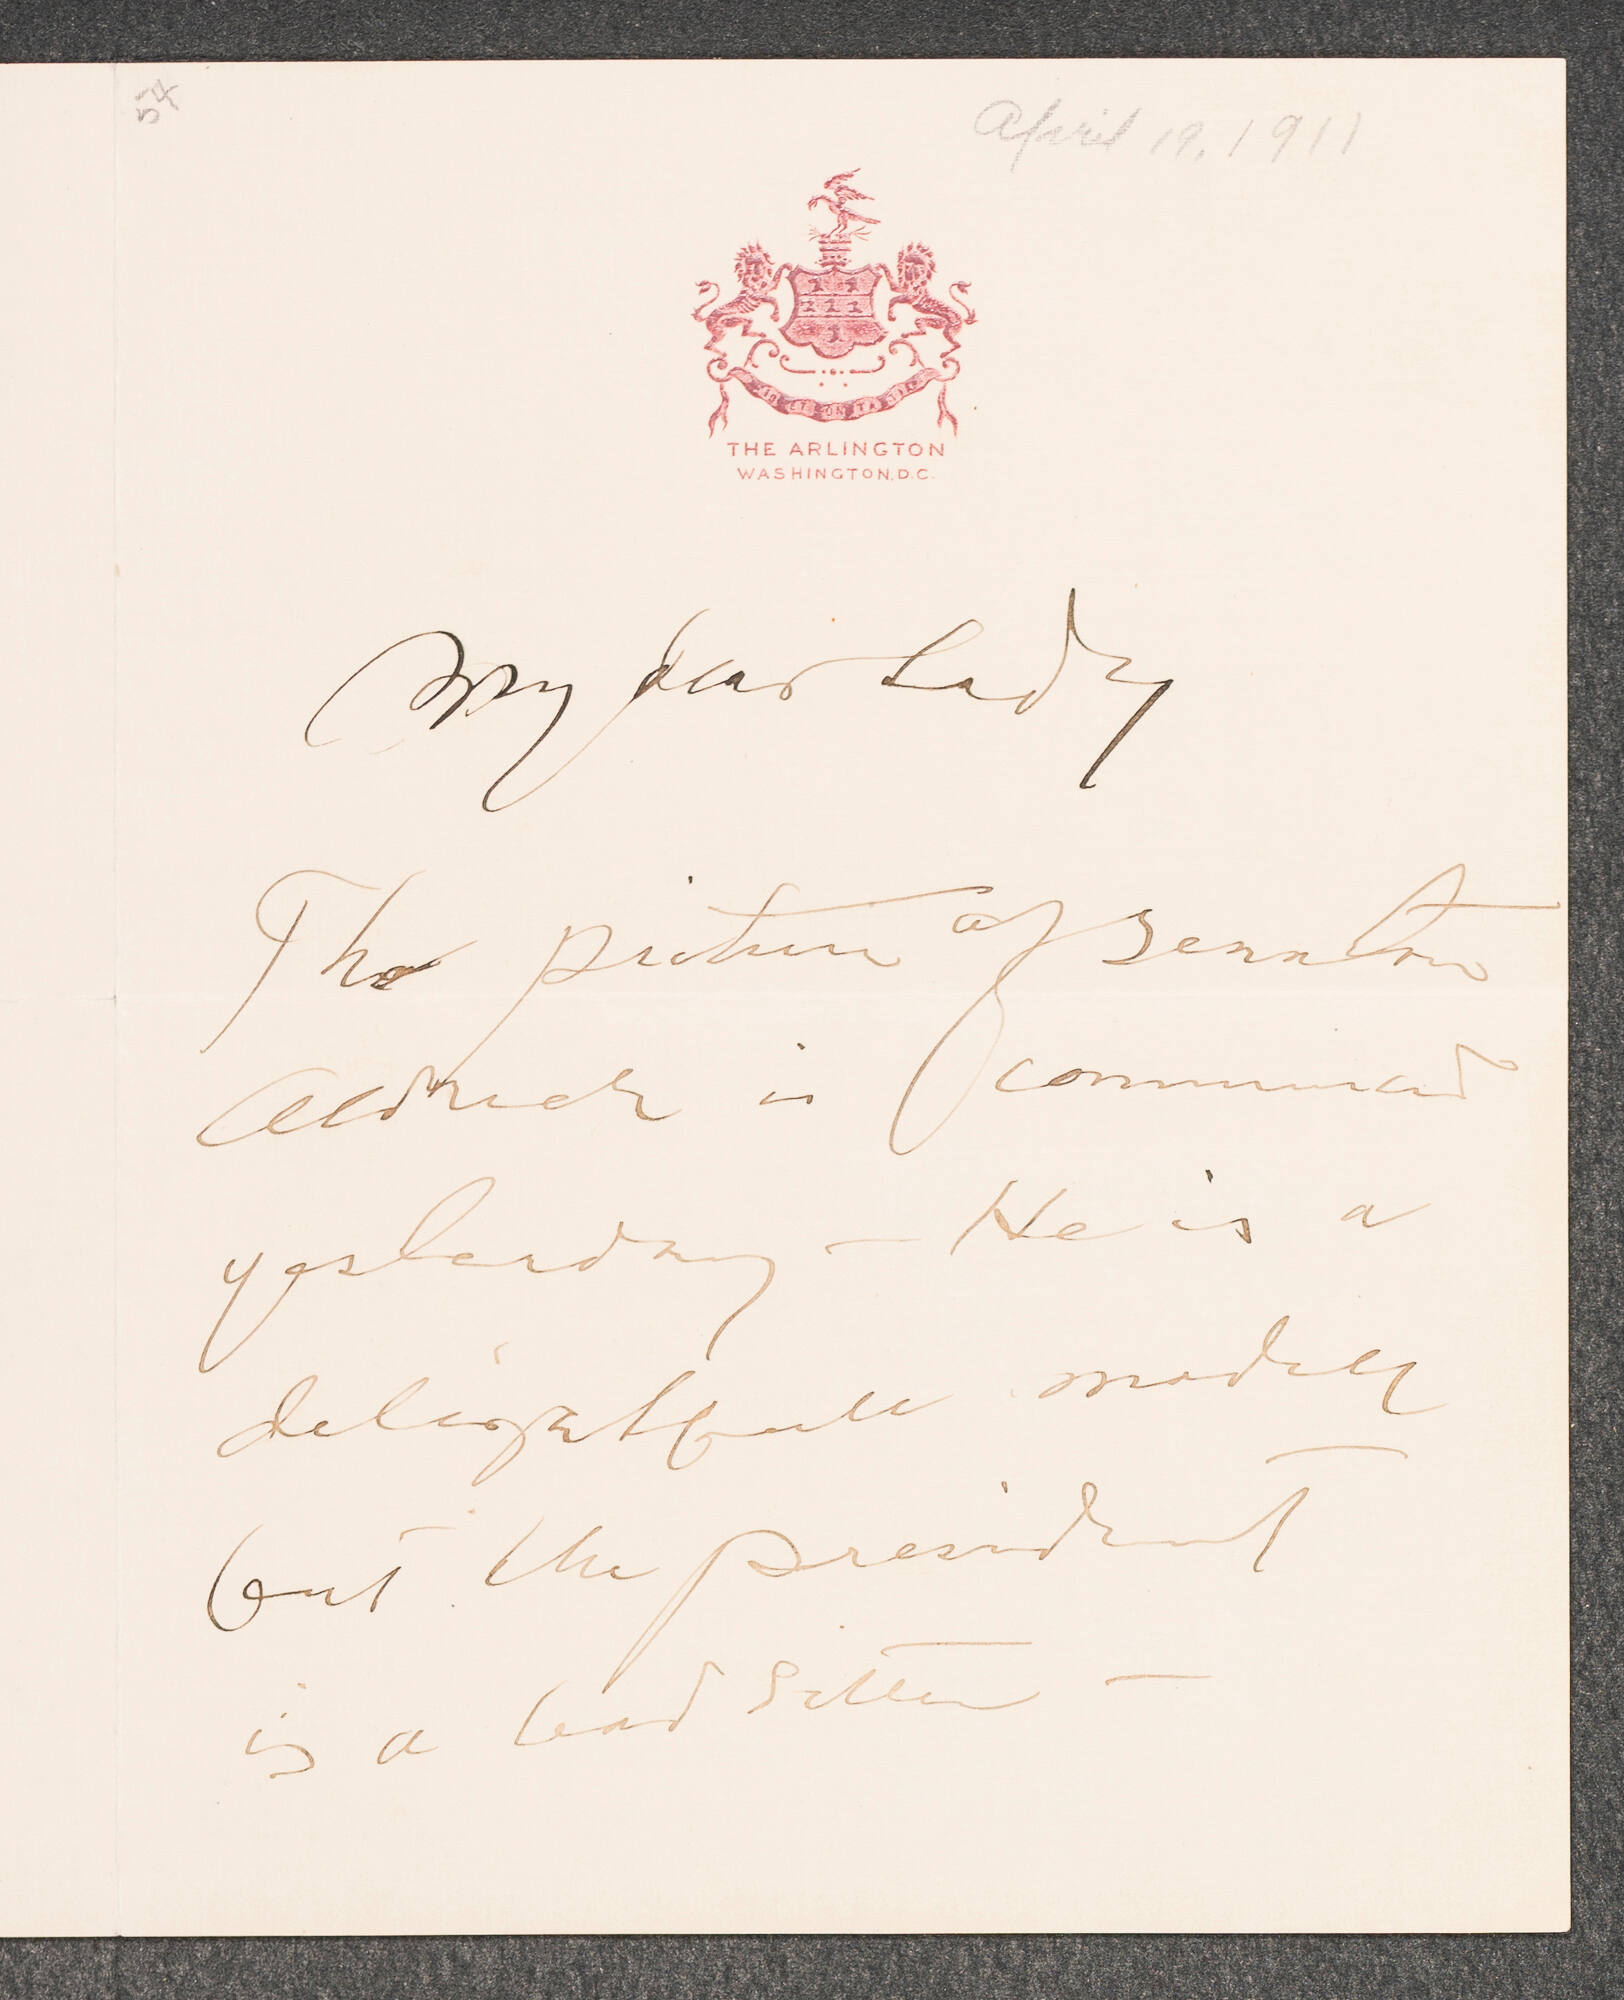 54
April 19, 1911
THE ARLINGTON
WASHINGTON, D.C.
My dear Lady
The picture of Senator
Aldrich is commenced
yesterday — He is a
delightfull modell
but the president
is a bad sitter —